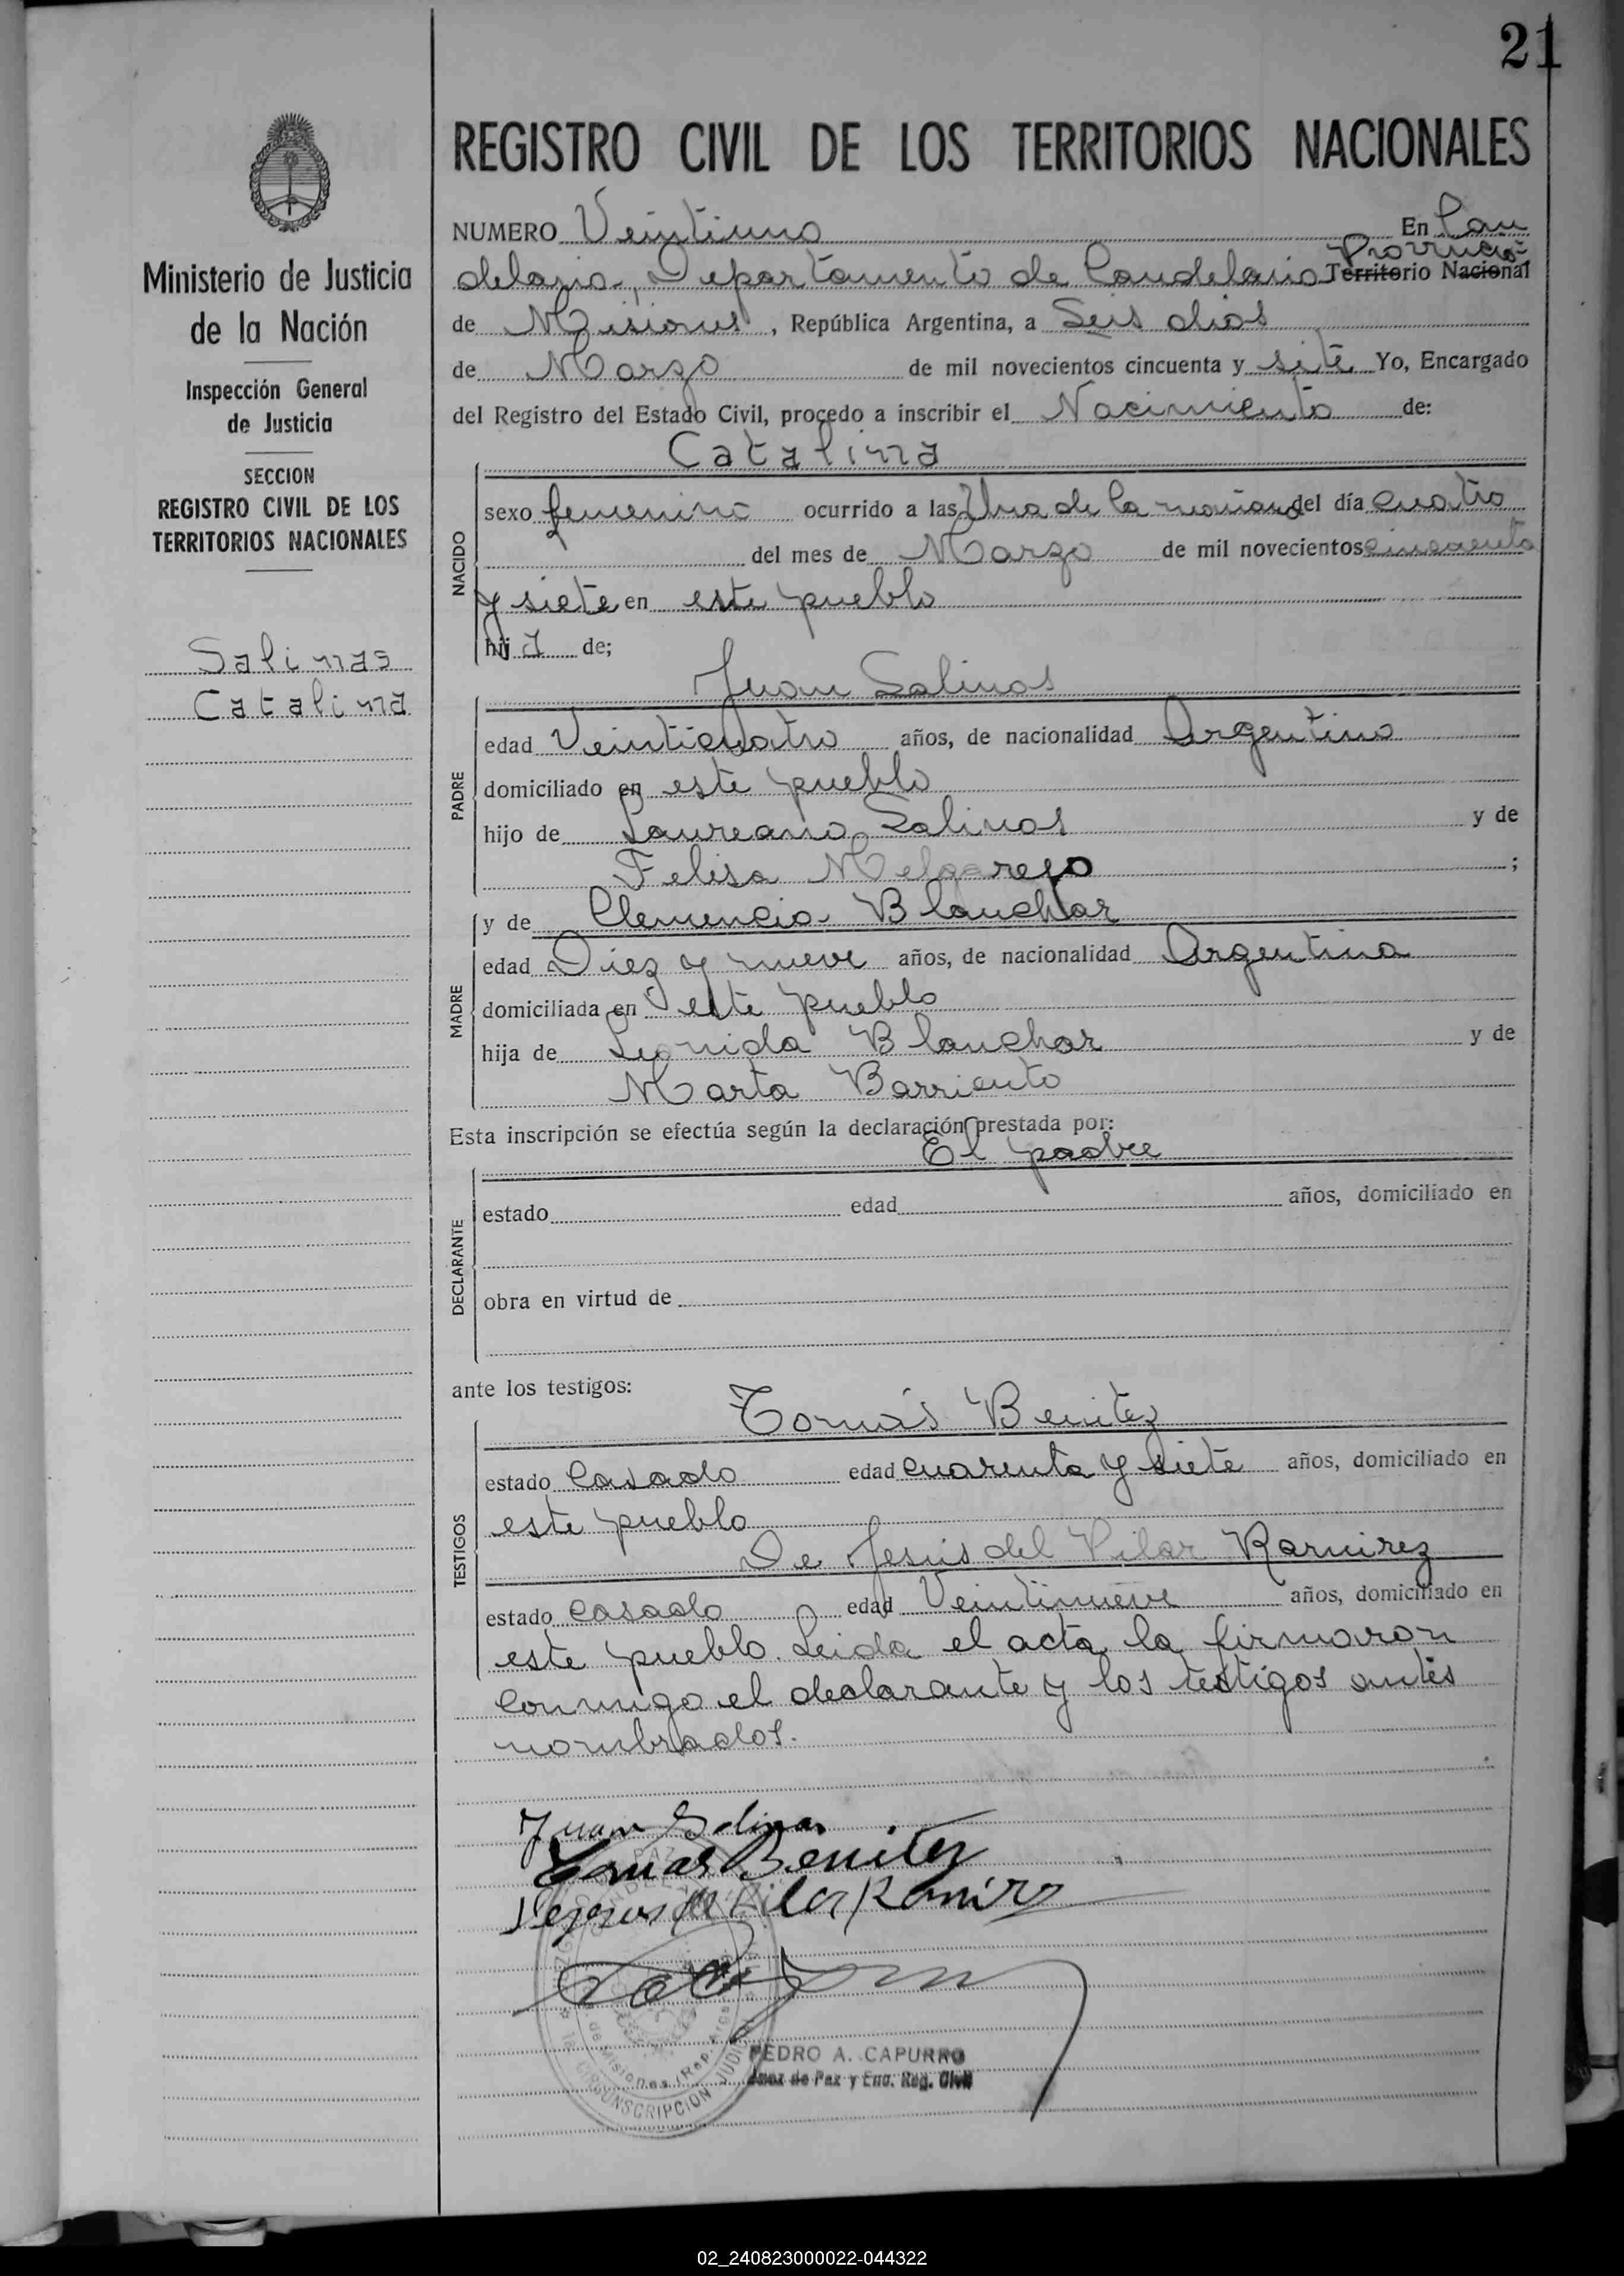 21
REGISTRO CIVIL DE LOS TERRITORIOS NACIONALES
Ministerio de Justicia
de la Nación
Inspección General
de Justicia
SECCION
REGISTRO CIVIL DE LOS
TERRITORIOS NACIONALES
Salinas
Catalina
NUMERO Veintiuno En Can
delaria, Departamento de Candelaria Provincia Territorio Nacional
de Misiones, República Argentina, a Seis dias
de Marzo de mil novecientos cincuenta y siete Yo, Encargado
del Registro del Estado Civil, procedo a inscribir el Nacimiento de:
Catalina
NACIDO
sexo femenino ocurrido a las Una de la mañana del día cuatro
del mes de Marzo de mil novecientos cincuenta
y siete en este pueblo
hija de;
Juan Salinas
PADRE
edad Veinticuatro años, de nacionalidad Argentino
domiciliado en este pueblo
hijo de Laureano Salinas y de
Felisa Melgarejo ;
y de Clemencia Blanchar
MADRE
edad Diez y nueve años, de nacionalidad Argentina
domiciliada en este pueblo
hija de Leonida Blanchar y de
Marta Barriento
Esta inscripción se efectúa según la declaración prestada por:
El padre
DECLARANTE
estado edad años, domiciliado en
obra en virtud de
ante los testigos:
Tomás Benitez
TESTIGOS
estado casado edad cuarenta y siete años, domiciliado en
este pueblo
De Jesús del Pilar Ramirez
estado casado edad Veintinueve años, domiciliado en
este pueblo. Leida el acta la firmaron
conmigo el declarante y los testigos antes
nombrados.
Juan Salinas
Tomas Benitez
PEDRO A. CAPURRO
Juez de Paz y Enc. Reg. Civil
CIRCUNSCRIPCION JUDICIAL
02_240823000022-044322